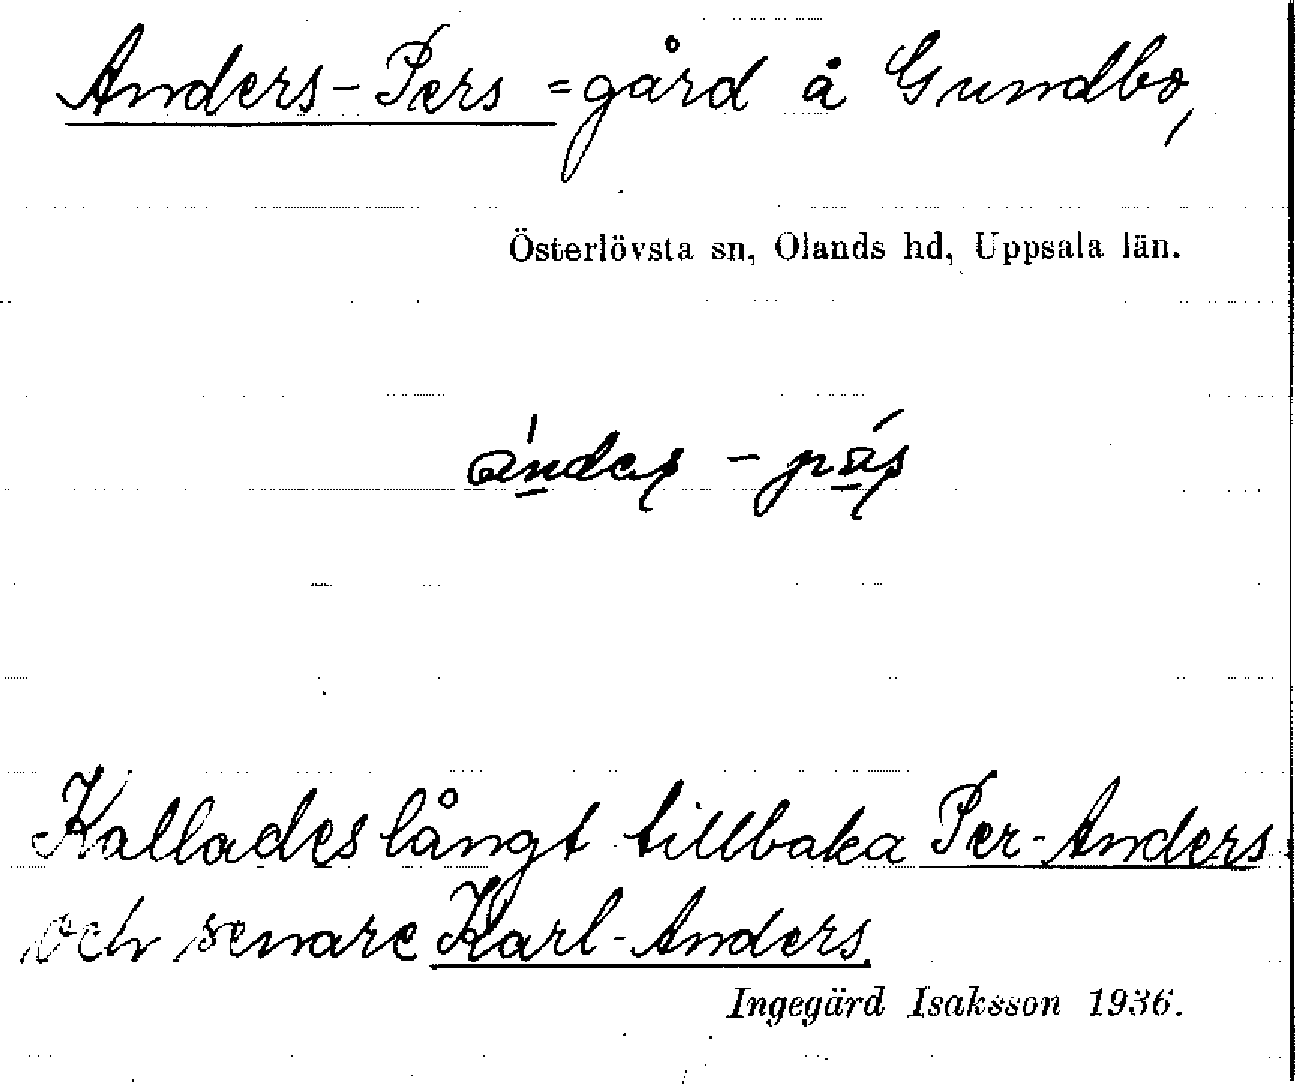 Anders-Pers =gård å Gundbo,
Österlövsta sn, Olands hd, Uppsala län.
Kallades långt tillbaka Per-Anders
och senare Karl-Anders.
Ingegärd Isaksson 1936.